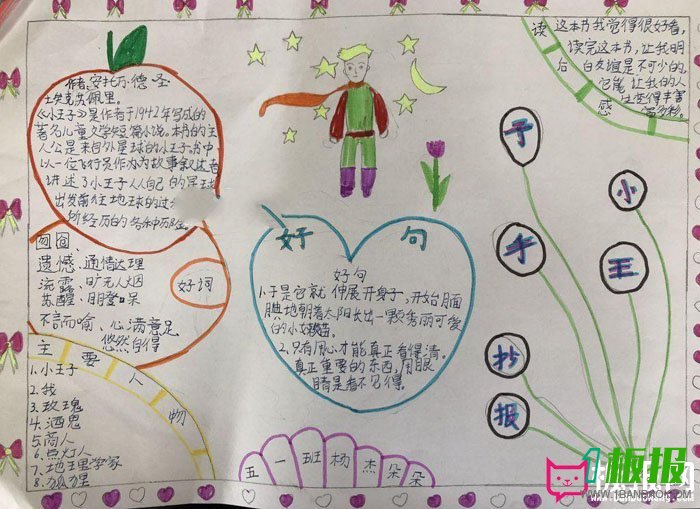 作者:安托万·德·圣
埃克苏佩里。
《小王子》是作者于1942年写成的
著名儿童文学短篇小说。本书的主
人公是来自外星球的小王子。书中
以一位飞行员作为故事叙述者
讲述了小王子从自己的星球
出发前往地球的过
所经历的各种历险。
遗憾、通情达理
流露、旷无人烟
苏醒、目瞪口呆
不言而喻、心满意足
悠然自得
好词
主要人物
1.小王子
2.我
3.玫瑰
4.酒鬼
5.商人
6.点灯人
7.地理学家
8.狐狸
好句
好句
1.于是它就伸展开身子,开始腼
腆地朝着太阳长出一颗秀丽可爱
的小嫩苗。
2.只有用心才能真正看得清。
真正重要的东西,用眼
睛是看不见得。
五一班杨杰朵朵
读后感
这本书我觉得很好看,
读完这本书,让我明
白友谊是不可少的,
它能让我的人
生变得丰富
多彩。
小
王
子
手
抄
报
1板报
WWW.1BANBAO.COM